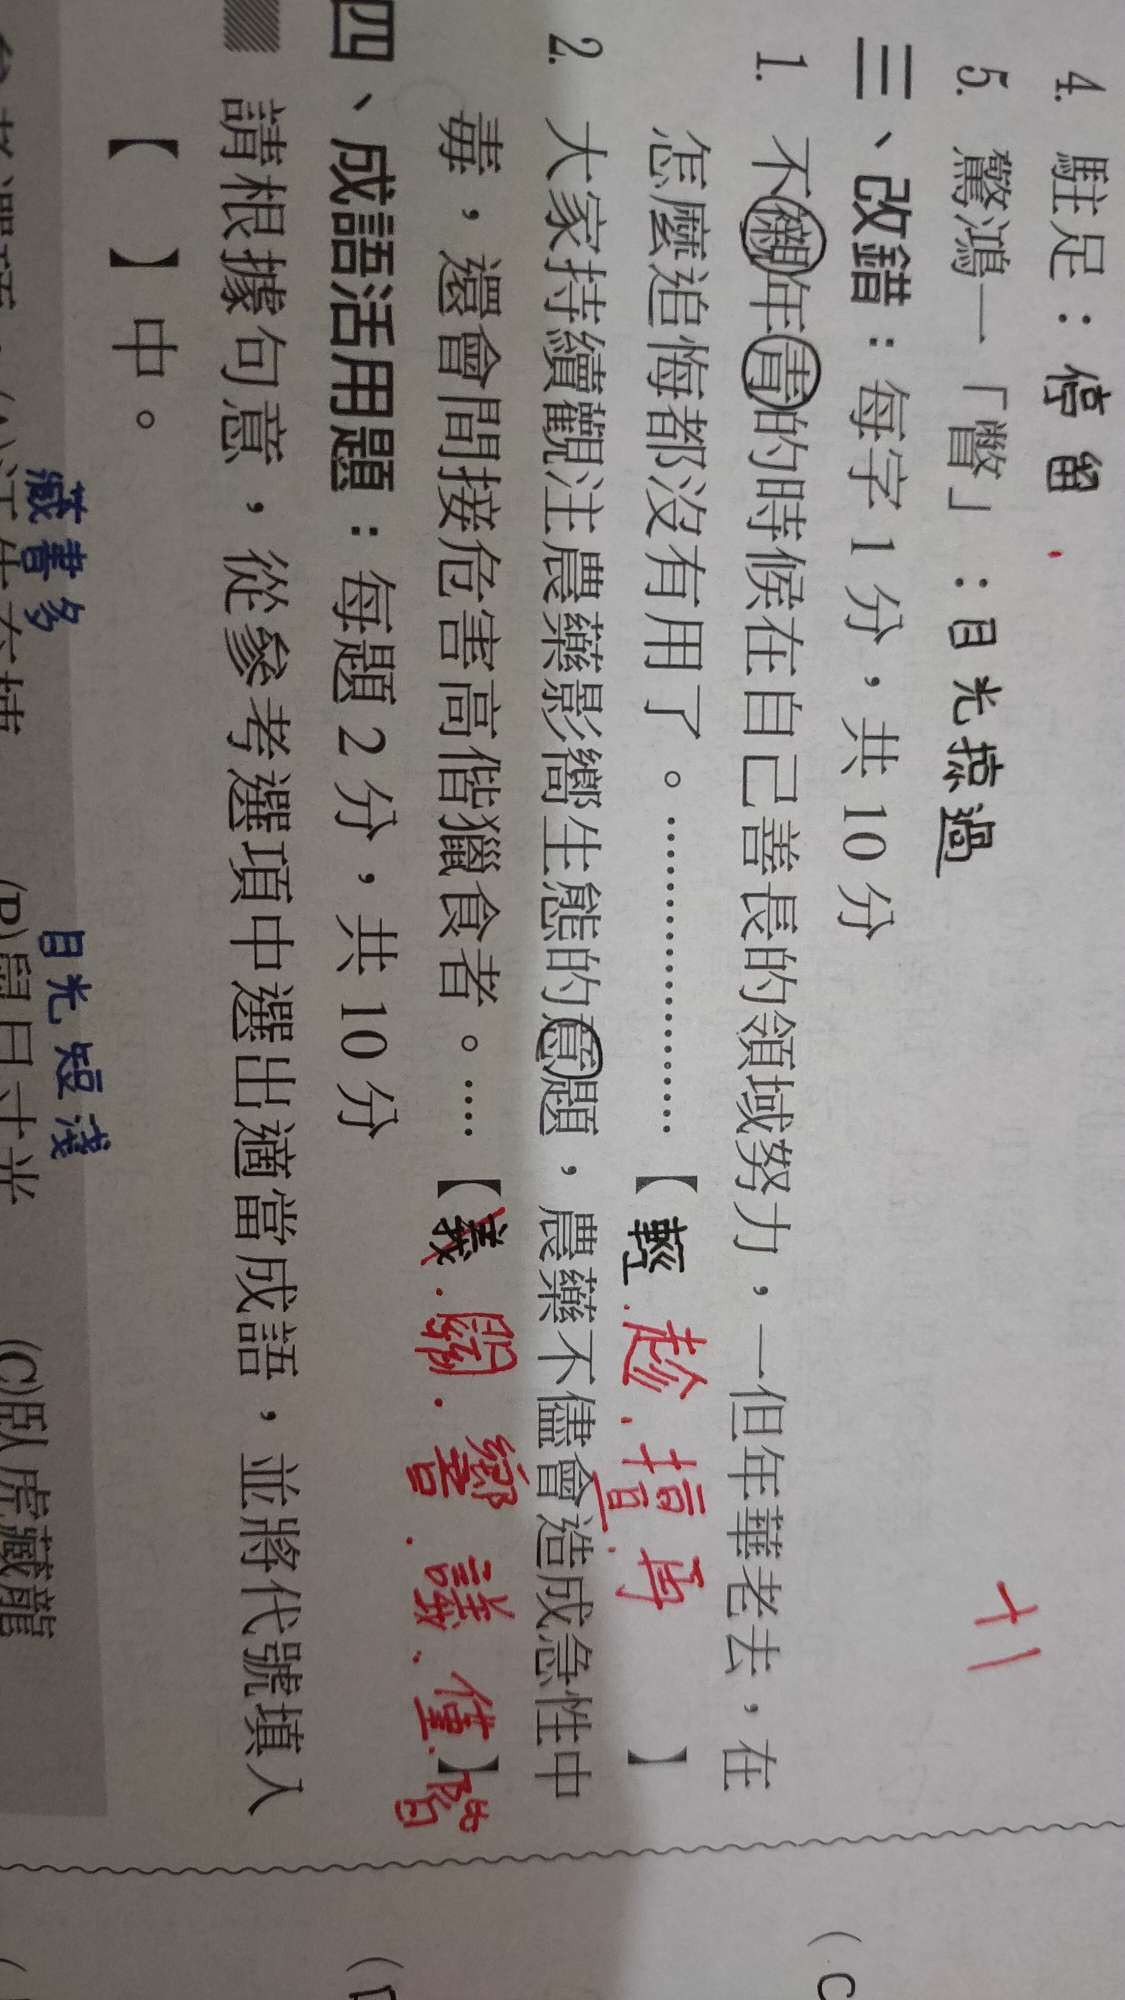 4. 駐足：停留
5. 驚鴻一「瞥」：目光掠過
三、改錯：每字1分，共10分
1. 不襯年青的時候在自己善長的領域努力，一但年華老去，在
怎麼追悔都沒有用了。………………【輕.趁.擅.旦.再】
2. 大家持續觀注農藥影嚮生態的意題，農藥不儘會造成急性中
毒，還會間接危害高偕獵食者。…【義.關.響.議.僅.階】
四、成語活用題：每題2分，共10分
請根據句意，從參考選項中選出適當成語，並將代號填入
【 】中。
藏書多
目光短淺
(B)鼠目寸光
(C)臥虎藏龍
(C